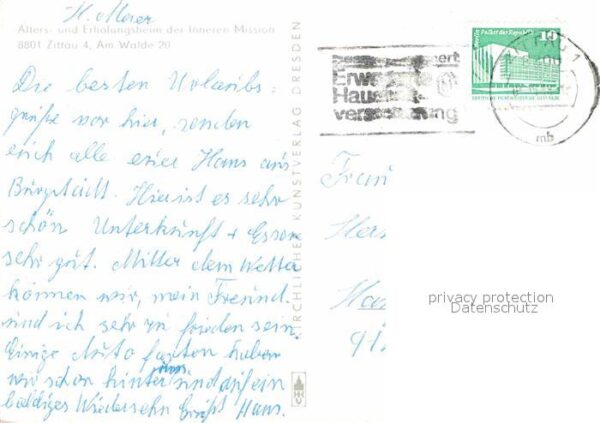 H. Meier
Alters- und Erholungsheim der Inneren Mission
8801 Zittau 4, Am Walde 20
Die besten Urlaubs-
grüße von hier, senden
euch alle eure Hans aus
Burgstädt. Hier ist es sehr
schön Unterkunft + Essen
sehr gut. Mitter dem Wetter
können wir, mein Freund
und ich sehr zu frieden sein.
Einige Auto farten haben
wir schon hinter uns und auf ein
baldiges Wiedersehn Grüßt Hans.
KIRCHLICHER KUNSTVERLAG DRESDEN
Erweiterte
Haushalt-
versicherung
Palast der Republik
10
mb
Frau
privacy protection
Datenschutz